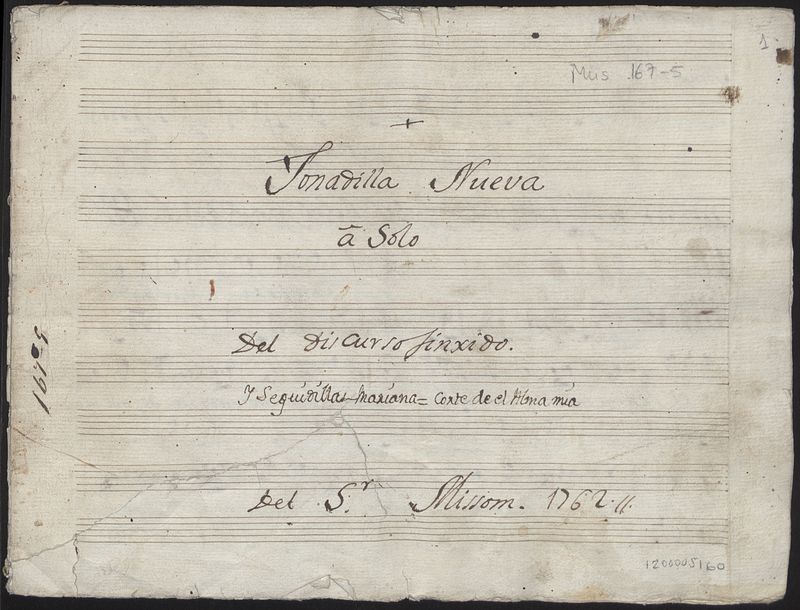 1
Mus 167-5
+
Tonadilla Nueva
â Solo
Del Discurso finxido.
Y Seguidillas Mariana = Corte de el Alma mia
Del S.r Misson. 1762.//
167=5
1200005160